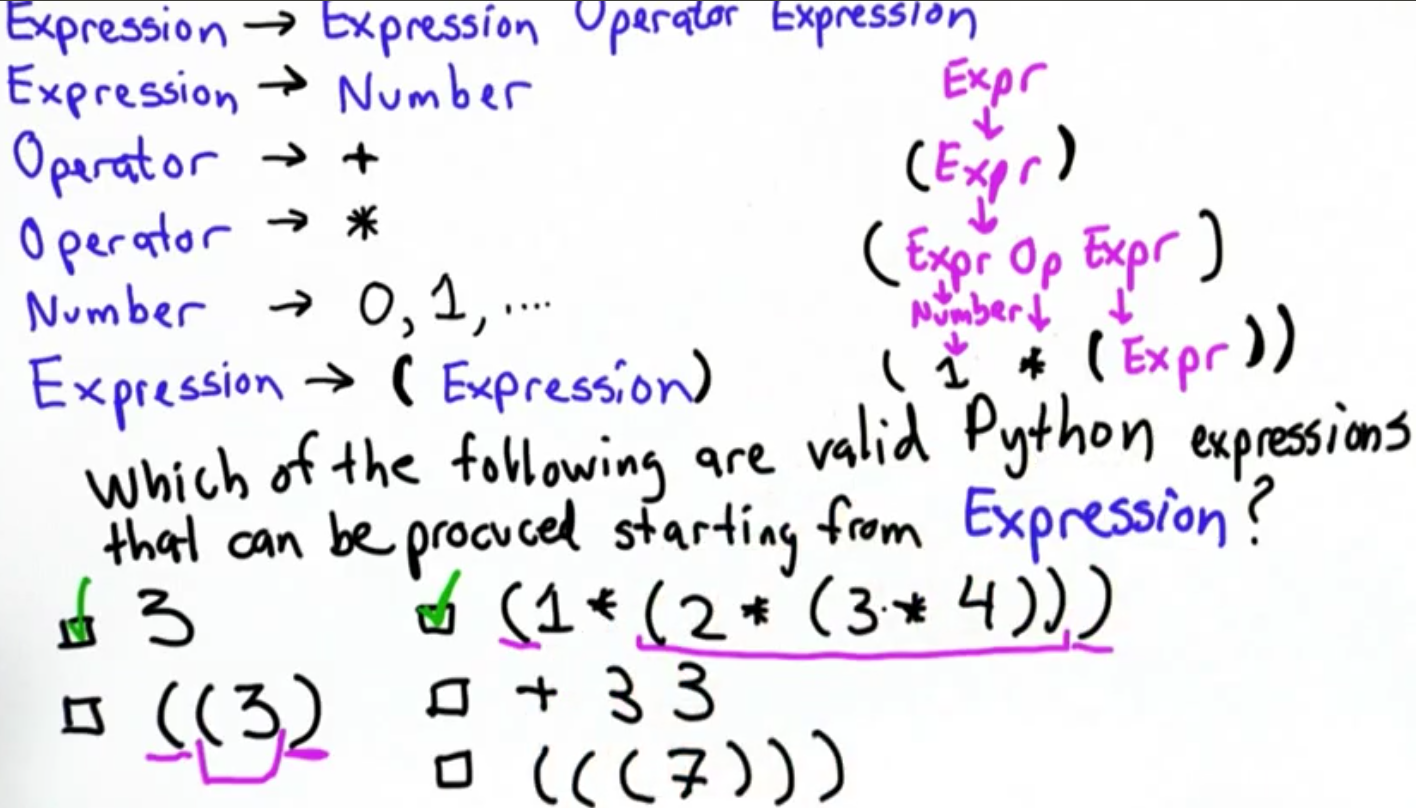 Expression → Expression Operator Expression
Expression → Number
Operator → +
Operator → *
Number → 0, 1, ....
Expression → ( Expression )
Expr
↓
(Expr)
↓
( Expr Op Expr )
↓ ↓ ↓
Number
↓
( 1 * ( Expr ))
Which of the following are valid Python expressions
that can be procuced starting from Expression?
3
(1 * (2 * (3 * 4)))
((3)
+ 3 3
(((7)))